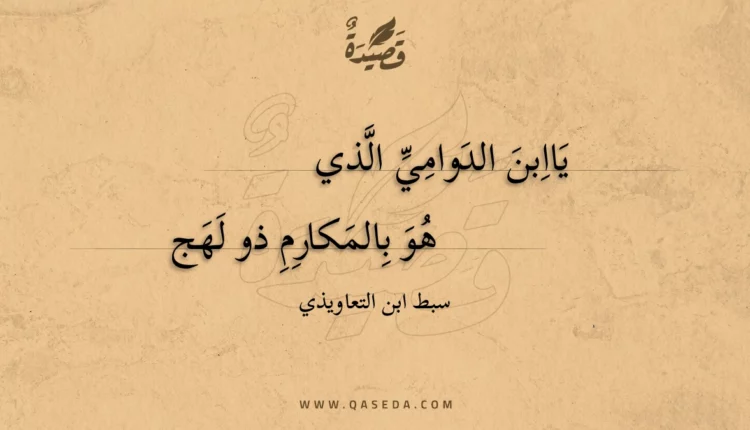 قَصِيْدَةٌ
يَااِبنَ الدَوامِيِّ الَّذي
هُوَ بِالمَكارِمِ ذو لَهَج
سبط ابن التعاويذي
WWW.QASEDA.COM